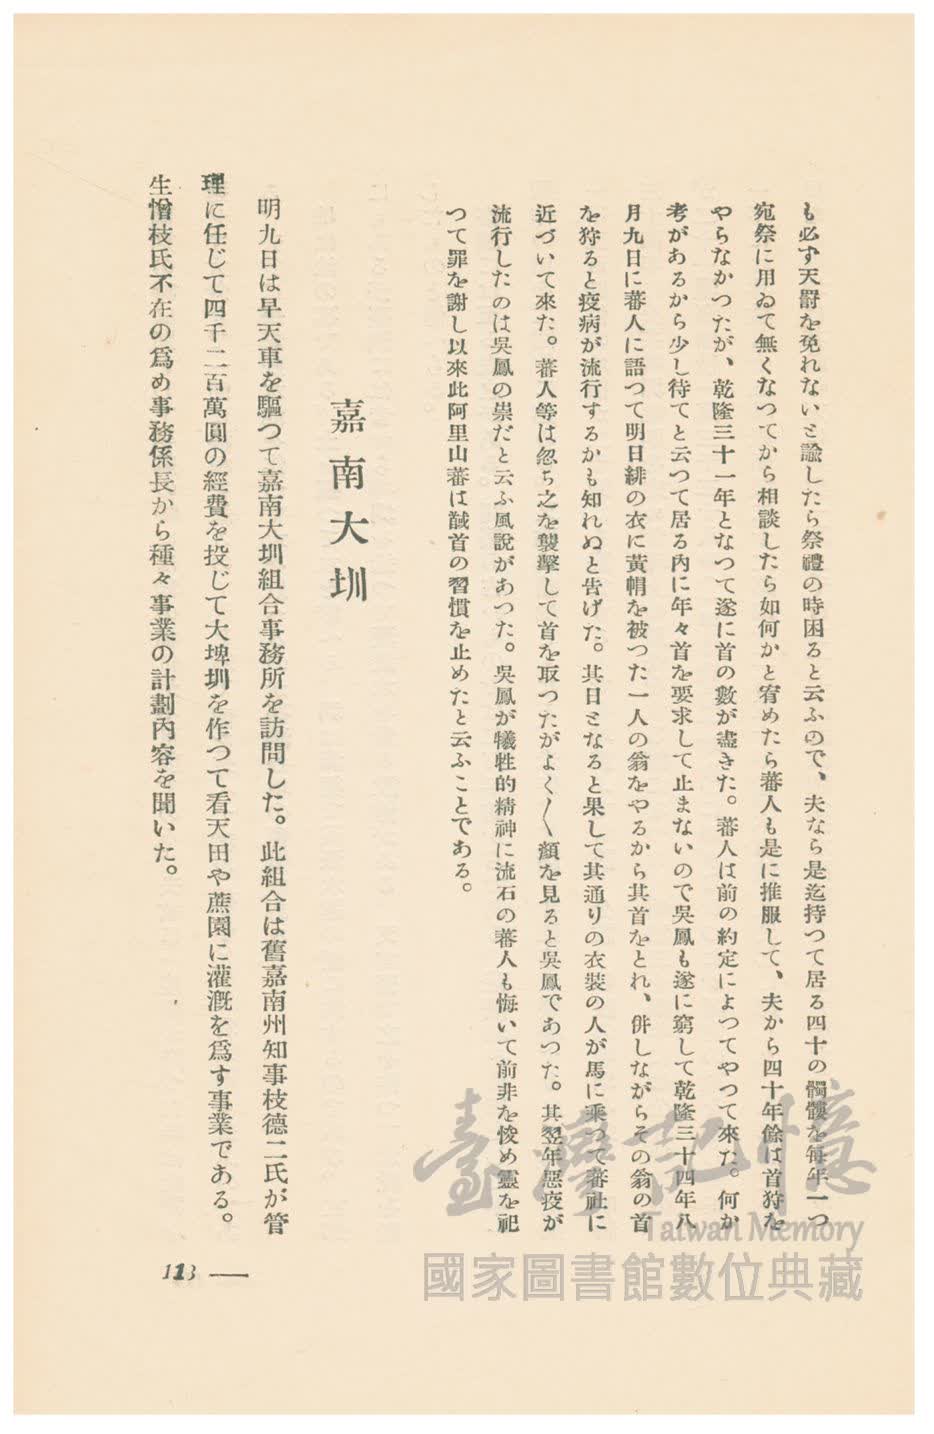 も必ず天罸を免れないと諭したら祭禮の時困ると云ふので、夫なら是迄持つて居る四十の髑髏を每年一つ
宛祭に用ゐて無くなつてから相談したら如何かと宥めたら蕃人も是に推服して、夫から四十年餘は首狩を
やらなかつたが、乾隆三十一年となつて遂に首の數が盡きた。蕃人は前の約定によつてやつて來た。何か
考があるから少し待てと云つて居る內に年々首を要求して止まないので吳鳳も遂に窮して乾隆三十四年八
月九日に蕃人に語つて明日緋の衣に黃帽を被つた一人の翁をやるから其首をとれ、併しながらその翁の首
を狩ると疫病が流行するかも知れぬと吿げた。其日となると果して其通りの衣裝の人が馬に乘つて蕃社に
近づいて來た。蕃人等は忽ち之を襲擊して首を取つたがよく〱顏を見ると吳鳳であつた。其翌年惡疫が
流行したのは吳鳳の祟だと云ふ風說があつた。吳鳳が犧牲的精神に流石の蕃人も悔いて前非を悛め靈を祀
つて罪を謝し以來此阿里山蕃は馘首の習慣を止めたと云ふことである。
嘉南大圳
明九日は早天車を驅つて嘉南大圳組合事務所を訪問した。此組合は舊嘉南州知事枝德二氏が管
理に任じて四千二百萬圓の經費を投じて大埤圳を作つて看天田や蔗園に灌漑を爲す事業である。
生憎枝氏不在の爲め事務係長から種々事業の計劃內容を聞いた。
113 —
臺灣記憶
Taiwan Memory
國家圖書館數位典藏